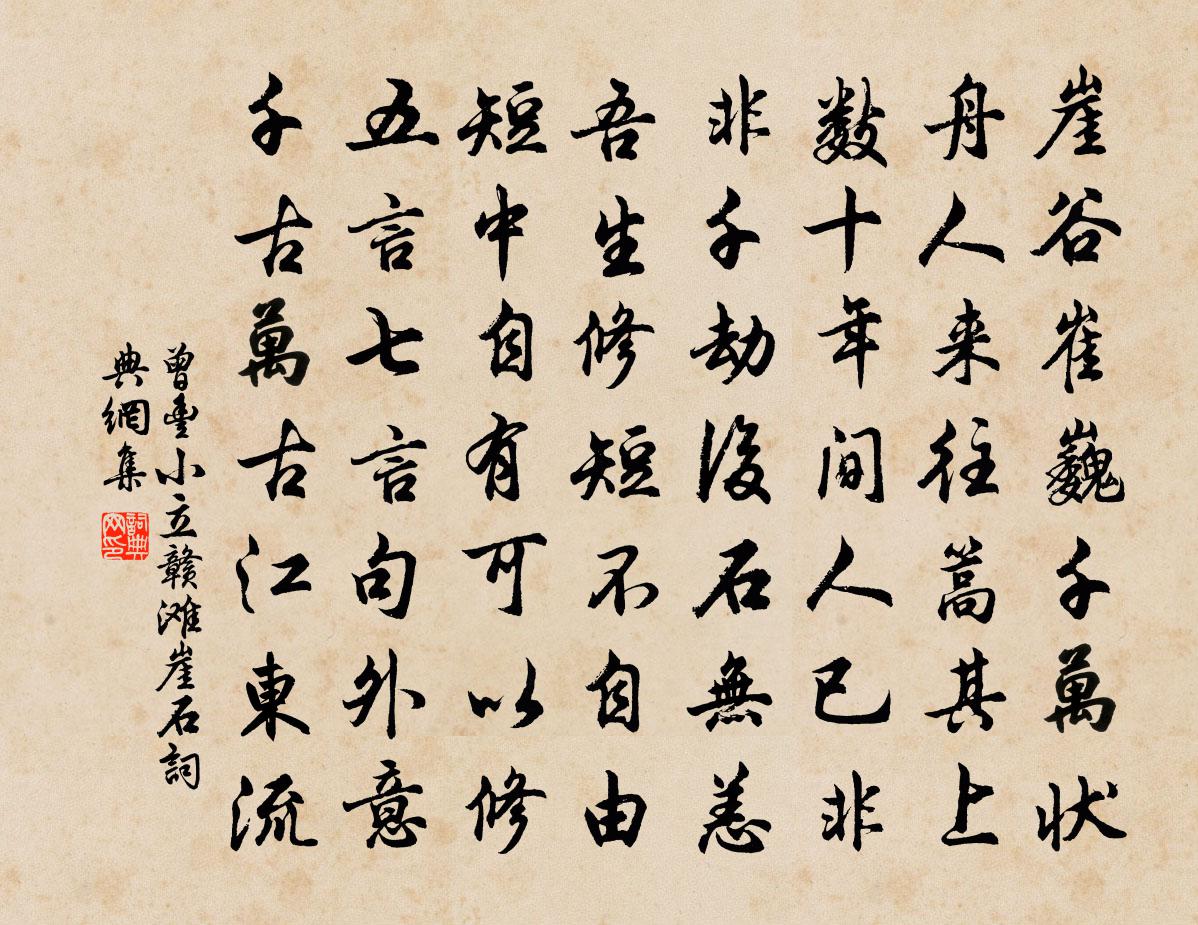 崖谷崔巍千萬状
舟人来往篙其上
数十年间人已非
非千劫後石無恙
吾生修短不自由
短中自有可以修
五言七言句外意
千古萬古江東流
曾豐小立赣滩崖石詞
典網集
詞典
网印